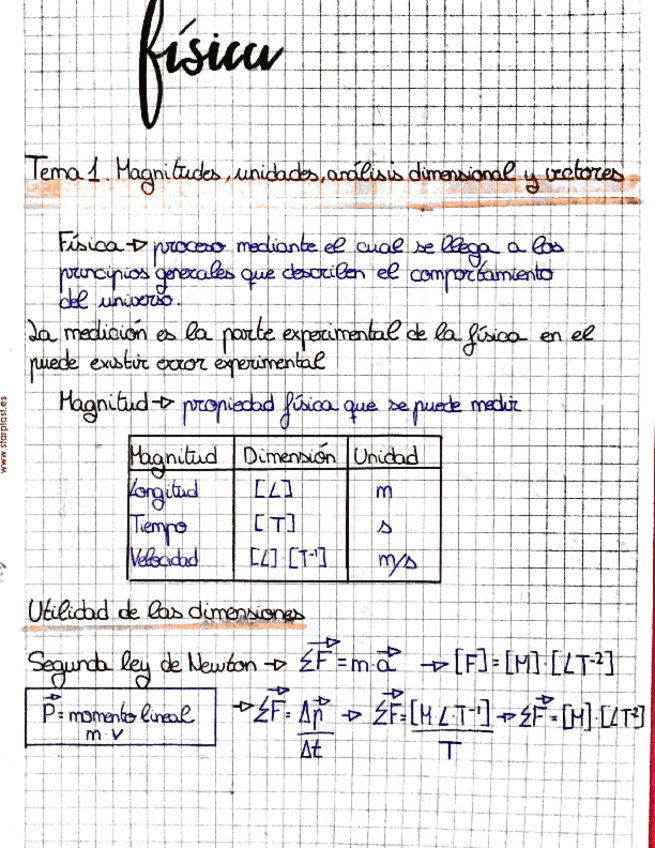 física
Tema 1. Magnitudes, unidades, análisis dimensional y vectores
Física → proceso mediante el cual se llega a los
principios generales que describen el comportamiento
del universo.
La medición es la parte experimental de la física en el
puede existir error experimental
Magnitud → propiedad física que se puede medir
Magnitud Dimensión Unidad
Longitud [L] m
Tiempo [T] s
Velocidad [L]·[T⁻¹] m/s
www.starplast.es
Utilidad de las dimensiones
Segunda ley de Newton → ΣF⃗ = m·a⃗ → [F] = [M]·[LT⁻²]
P⃗ = momento lineal
m·v
→ ΣF⃗ = Δp⃗/Δt → ΣF⃗ = [M L T⁻¹]/T → ΣF⃗ = [M]·[LT⁻²]